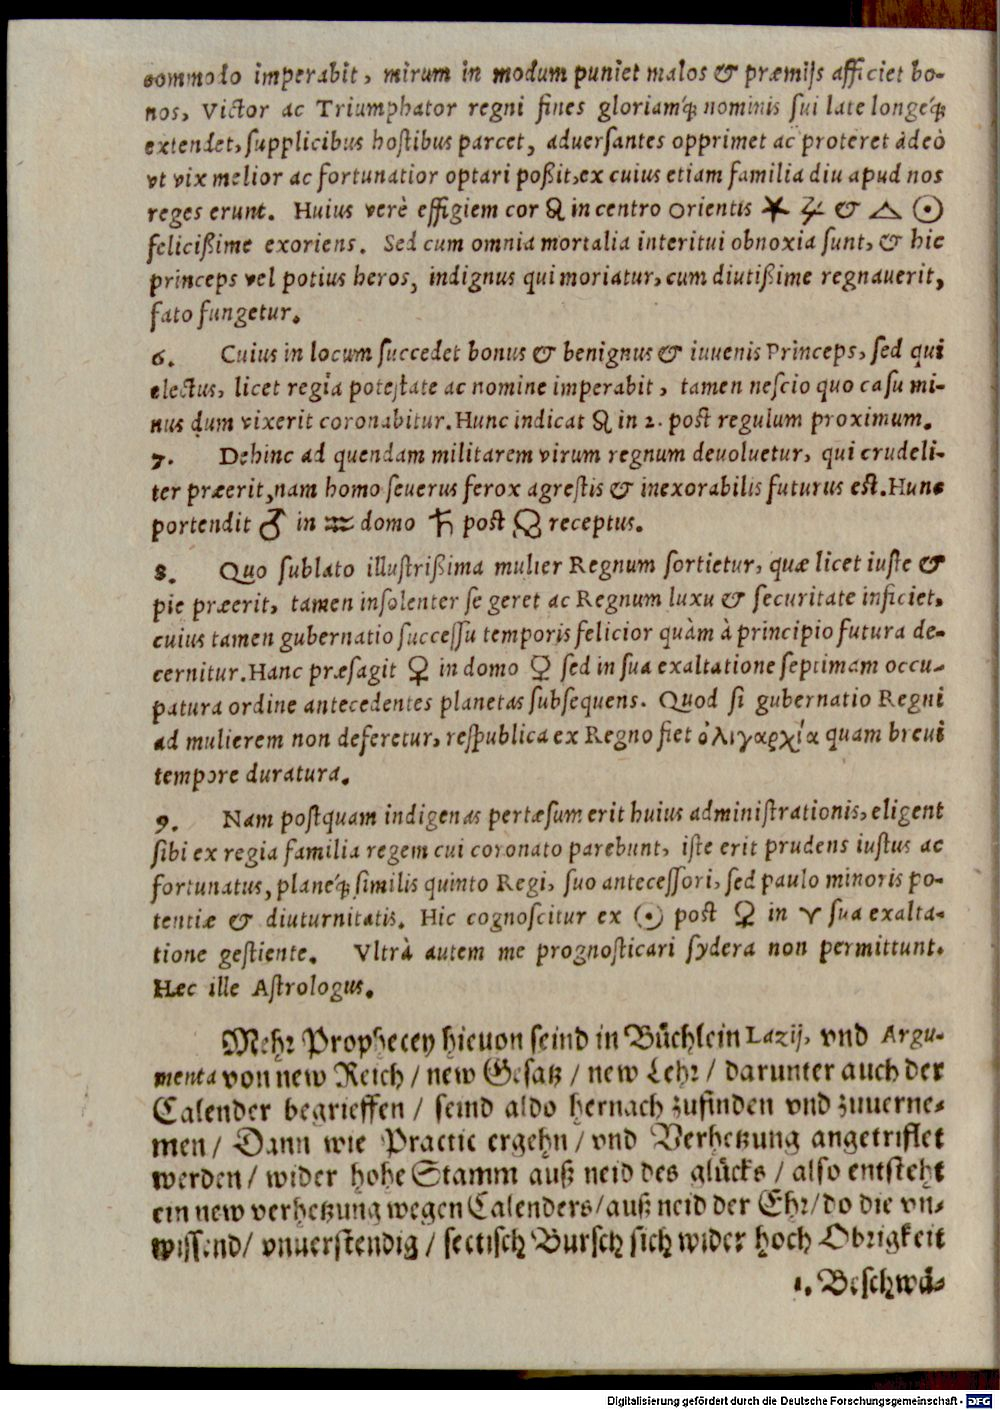 commodo imperabit, mirum in modum puniet malos & præmijs afficiet bo-
nos, Victor ac Triumphator regni fines gloriamq́; nominis sui late longeq́;
extendet, supplicibus hostibus parcet, aduersantes opprimet ac proteret àdeò
vt vix melior ac fortunatior optari poßit, ex cuius etiam familia diu apud nos
reges erunt. Huius verè effigiem cor ♌ in centro Orientis ⚹ ♃ & △ ☉
felicißime exoriens. Sed cum omnia mortalia interitui obnoxia sunt, & hic
princeps vel potius heros, indignus qui moriatur, cum diutißime regnauerit,
fato fungetur.
6. Cuius in locum succedet bonus & benignus & iuuenis Princeps, sed qui
electus, licet regia potestate ac nomine imperabit, tamen nescio quo casu mi-
nus dum vixerit coronabitur. Hunc indicat ♌ in 2. post regulum proximum.
7. Dehinc ad quendam militarem virum regnum deuoluetur, qui crudeli-
ter præerit, nam homo seuerus ferox agrestis & inexorabilis futurus est. Hunc
portendit ♂ in ♒ domo ♄ post ☊ receptus.
8. Quo sublato illustrißima mulier Regnum sortietur, quæ licet iuste &
pie præerit, tamen insolenter se geret ac Regnum luxu & securitate inficiet,
cuius tamen gubernatio successu temporis felicior quàm à principio futura de-
cernitur. Hanc præsagit ♀ in domo ♀ sed in sua exaltatione septimam occu-
patura ordine antecedentes planetas subsequens. Quod si gubernatio Regni
ad mulierem non deferetur, respublica ex Regno fiet ὀλιγαρχία quam breui
tempore duratura.
9. Nam postquam indigenas pertæsum erit huius administrationis, eligent
sibi ex regia familia regem cui coronato parebunt, iste erit prudens iustus ac
fortunatus, planeq́; similis quinto Regi, suo antecessori, sed paulo minoris po-
tentiæ & diuturnitatis. Hic cognoscitur ex ☉ post ♀ in ♈ sua exalta-
tione gestiente. Vltrà autem me prognosticari sydera non permittunt.
Hæc ille Astrologus.
Mehr Prophecey hieuon seind in Bůchlein Lazij, vnd Argu-
menta von new Reich / new Gesatz / new Lehr / darunter auch der
Calender begrieffen / seind aldo hernach zufinden vnd zuuerne-
men / Dann wie Practic ergehn / vnd Verhetzung angetrifflet
werden / wider hohe Stamm auß neid des glůcks / also entsteht
ein new verhetzung wegen Calenders / auß neid der Ehr / do die vn-
wissend / vnuerstendig / sectisch Bursch sich wider hoch Obrigkeit
1. Beschwå-
Digitalisierung gefördert durch die Deutsche Forschungsgemeinschaft - DFG